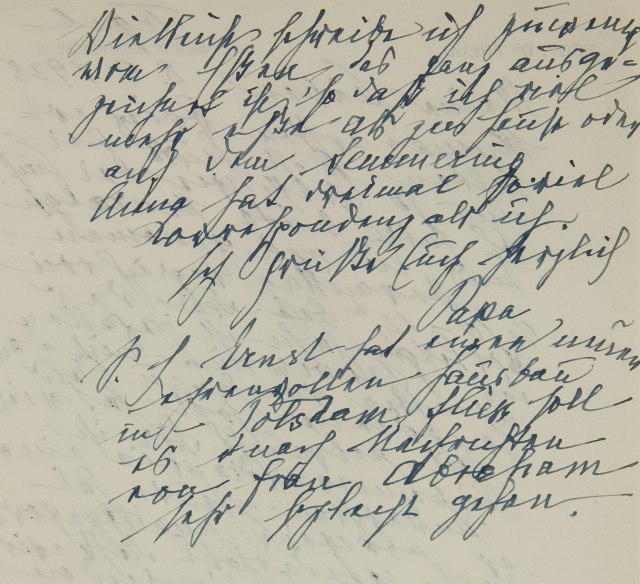 Vielleicht schreibe ich zu wenig
vom Essen das ganz ausge-
zeichnet ist, so daß ich viel
mehr esse als zu Hause oder
auf dem Semmering
Anna hat dreimal soviel
Korrespondenz als ich
Ich grüße Euch herzlich
Papa
P. S. Ernst hat einen neuen
ehrenvollen Hausbau
in Potsdam. Fließ soll
es nach Nachrichten
von Frau Abraham
sehr schlecht gehen.